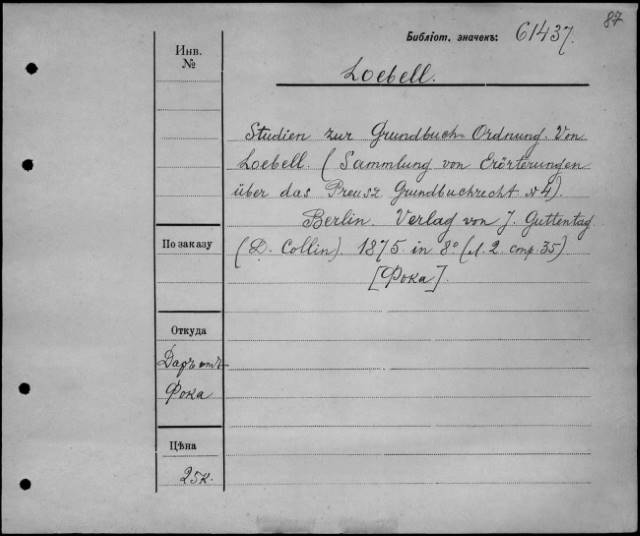 87
Библіот. значекъ: 61437.
Инв.
№
Loebell.
Studien zur Grundbuch-Ordnung. Von
Loebell. (Sammlung von Erörterungen
über das Preusz Grundbuchrecht №4).
Berlin. Verlag von J. Guttentag
По заказу
(D. Collin). 1875 in 8° (л. 2. стр. 35)
[Фока].
Откуда
Даръ отъ
Фока
Цѣна
25к.